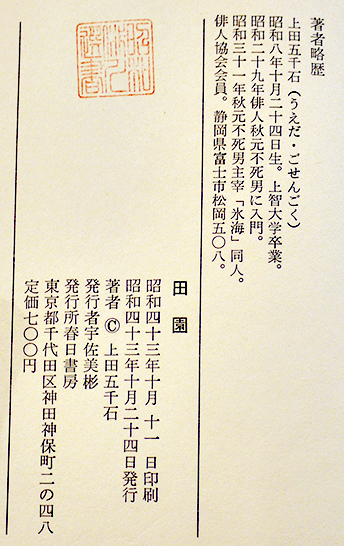 著者略歴
上田五千石(うえだ・ごせんごく)
昭和八年十月二十四日生。上智大学卒業。
昭和二十九年俳人秋元不死男に入門。
昭和三十一年秋元不死男主宰「氷海」同人。
俳人協会会員。静岡県富士市松岡五〇八。
田園
昭和四十三年十月十一日印刷
昭和四十三年十月二十四日発行
著者 © 上田五千石
発行者宇佐美彬
発行所春日書房
東京都千代田区神田神保町二の四八
定価七〇〇円